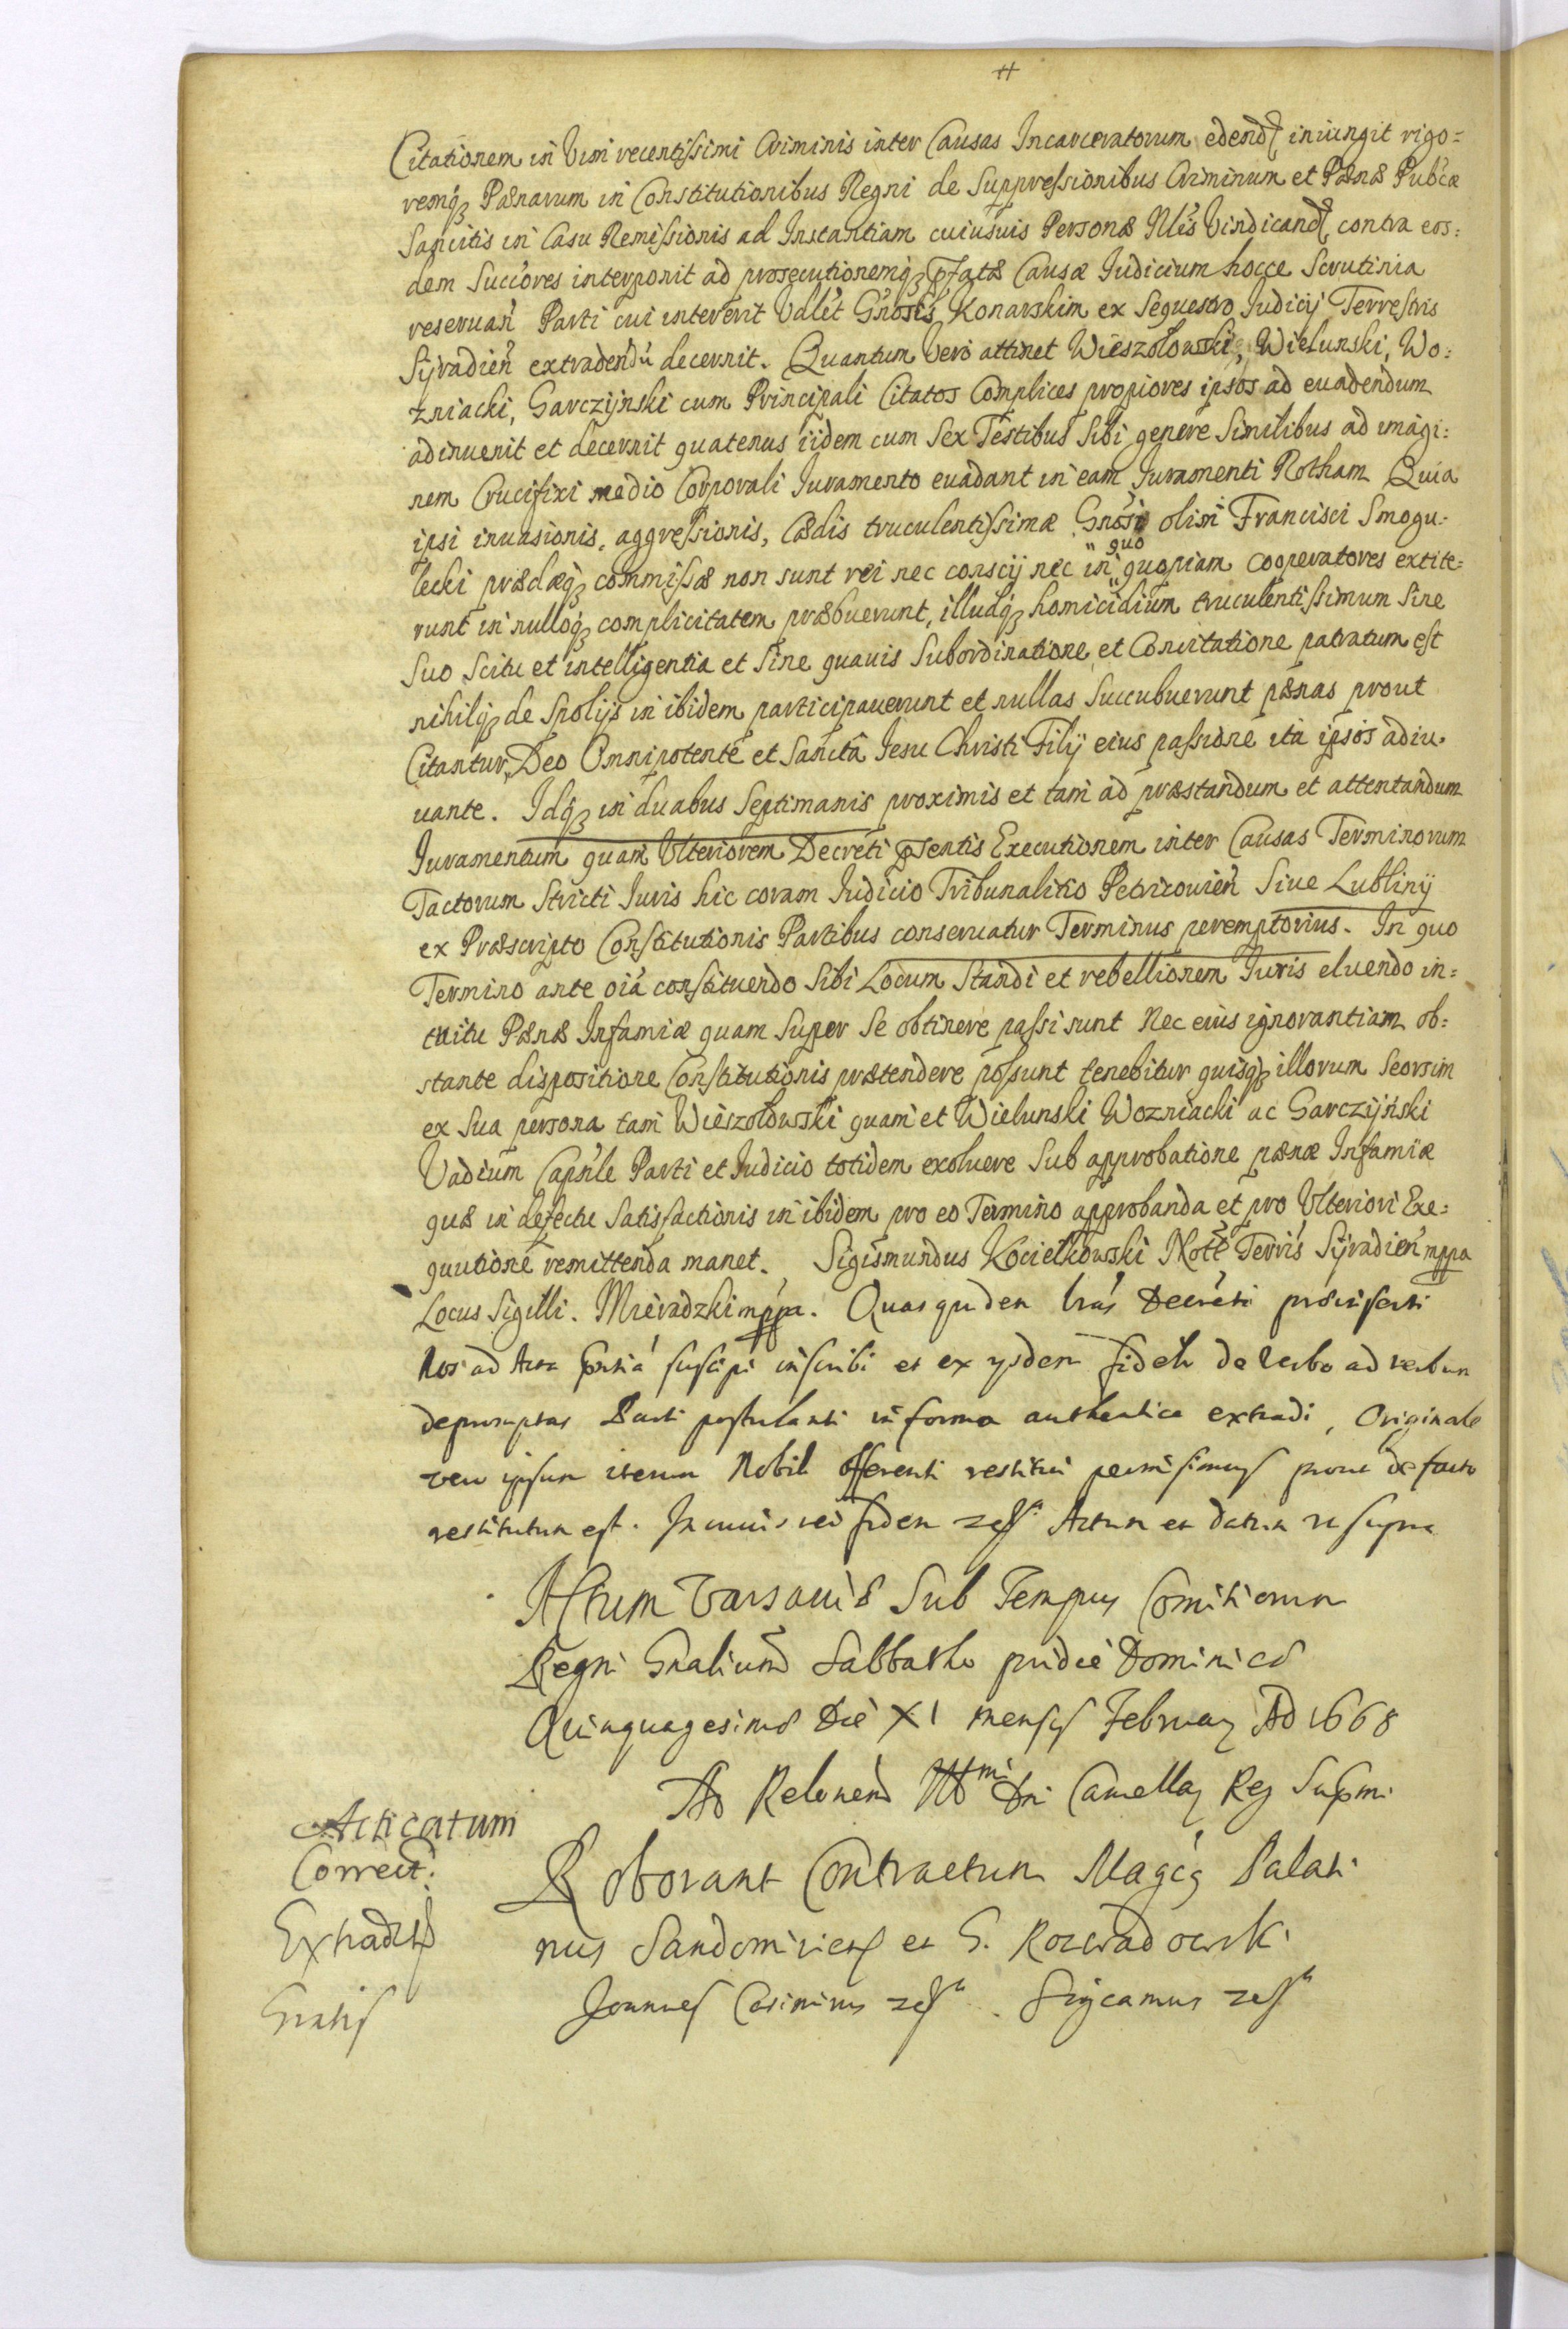 Citationem in Vim recentissimi Criminis inter Causas Incarceratorum edend iniungit rigo=
remq Pænarum in Constitutionibus Regni de Suppressionibus Criminum et Pænæ Pubcæ
Sancitis in Casu Remissionis ad Instantiam cuiusuis Personæ Illis Vindicand contra eos=
dem Succores interponit ad prosecutionemq pfatæ Causæ Iudicium hocce Scrutinia
reseruan Parti cui intererit Valet Gnosis Konarskim ex Sequestro Iudicij Terrestris
Sÿradien extradendu decernit. Quantum Vero attinet Wieszolowski, Wielunski, Wo=
zniacki, Garczÿnski cum Principali Citatos Complices propiores ipsos ad euadendum
adinuenit et decernit quatenus iidem cum Sex Testibus Sibi genere Similibus ad imagi=
nem Crucifixi medio Corporali Iuramento euadant in eam Iuramenti Rotham Quia
ipsi inuasionis, aggressionis, Cædis truculentissimæ Gnosi olim Francisci Smogu=
lecki prædæq commissæ non sunt rei nec conscij nec in quo quopiam cooperatores extite=
runt in nulloq complicitatem præbuerunt, illudq homicidium truculentissimum Sine
Suo Scitu et intelligentia et Sine quauis Subordinatione et Concitatione patratum est
nihilq de Spolijs in ibidem participauerunt et nullas Succubuerunt pænas prout
Citantur, Deo Omnipotente et Sanctâ Iesu Christi Filÿ eius passione ita ipsos adiu
uante. Idq in duabus Septimanis proximis et tam ad præstandum et attentandum
Iuramentum quam Vlteriorem Decreti psentis Executionem inter Causas Terminorum
Tactorum Stricti Iuris hic coram Iudicio Tribunalitio Petricouien Siue Lublinÿ
ex Præscripto Constitutionis Partibus conseruatur Terminus peremptorius. In quo
Termino ante oia constituendo Sibi Locum Standi et rebellionem Iuris eluendo in=
tuitu Pænæ Infamiæ quam Super Se obtinere passi sunt Nec eius ignorantiam ob=
stante dispositione Constitutionis prætendere possunt tenebitur quisq illorum Seorsim
ex Sua persona tam Wieszolowski quam et Wielunski Wozniacki ac Garczÿński
Vadium Capnle Parti et Iudicio totidem exoluere Sub approbatione pænæ Infamiæ
quæ in defectu Satisfactionis in ibidem pro eo Termino approbanda et pro Vlteriori Exe=
quutione remittenda manet. Sigismundus Kocielkowski Nott Terris Sÿradien mppa
Locus Sigilli. Mieradzki mppa. Quas quidem lras Decreti præinserti
Nos ad Acta pntia suscipi inscribi et ex ysdem fideli de Verbo ad verbum
depromptas Parti postulanti in forma authentica extradi, Originale
vero ipsum iterum Nobili Offerenti restitui permisimus prout de facto
restitutum est. In cuius rei fidem Actum et datum ut supra
Actum Varsauiæ Sub Tempus Comitiorum
Regni Gnalium Sabbatho pridie Dominicæ
Quinquagesimæ Die XI mensis February AD 1668
Ad Relonem Illmi Dni Cancellary Reg Supmi
Acticatum
Correct:
Extradit
Gratis
Roborant Contractum Magcg Palati
nus Sandomiriens et G. Rozwadowski
Joannes Casimirus